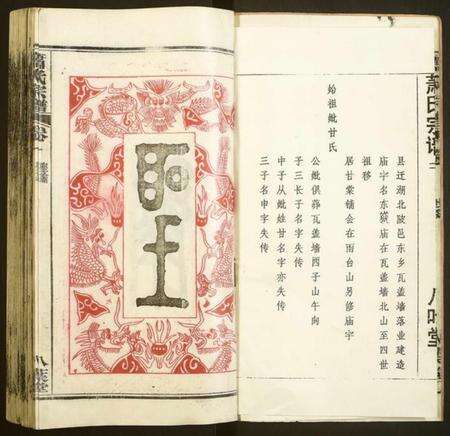 县迁湖北陂邑东乡瓦盖墙落业建造
庙宇名东嶽庙在瓦盖墙北山至四世
祖移
居甘棠铺会在雨台山另修庙宇
始祖妣甘氏
公妣俱葬瓦盖墙西子山午向
子三长子名字失传
中子从妣姓甘名字亦失传
三子名申字失传
萧氏宗谱
八叶堂
萧氏宗谱
八葉堂